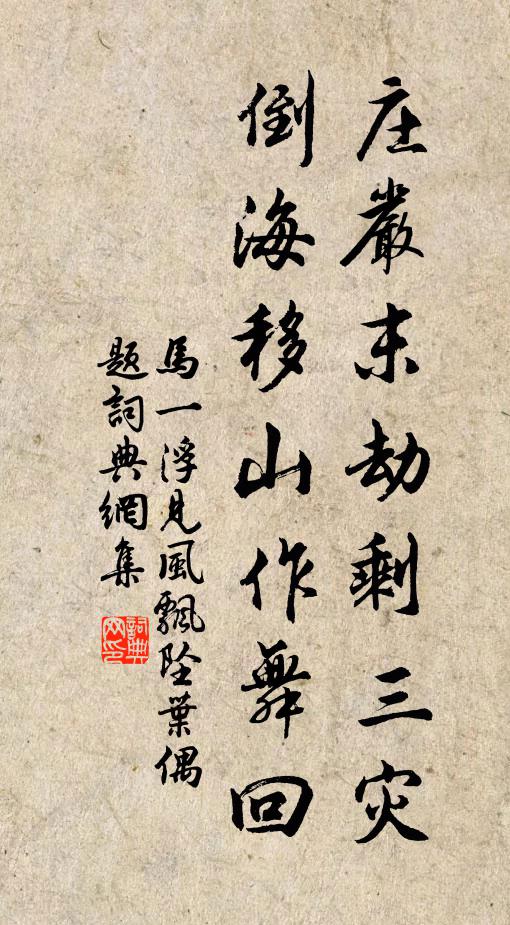 庄嚴末劫剩三灾
倒海移山作舞回
馬一浮見風飄墜葉偶
題詞典網集
詞典
网印